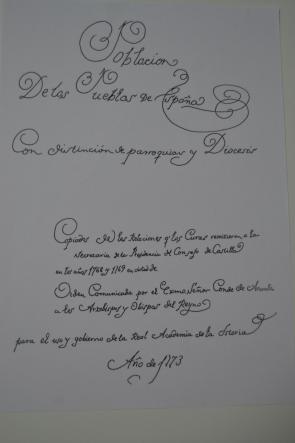 Poblacion
De los Pueblos de España
Con distinción de parroquias y Diocesis
Copiados de las Relaciones q. los Curas remitieron a la
Secretaria de la Presidencia del Consejo de Castilla
en los años 1768 y 1769 en virtud de
Orden Comunicada por el Exmo Señor Conde de Aranda
a los Arzobispos y Obispos del Reyno
para el uso y gobierno de la Real Academia de la Istoria
Año de 1773